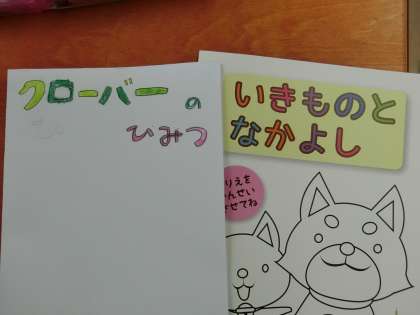 クローバーの
ひみつ
いきものと
なかよし
りえを
んせい
させてね